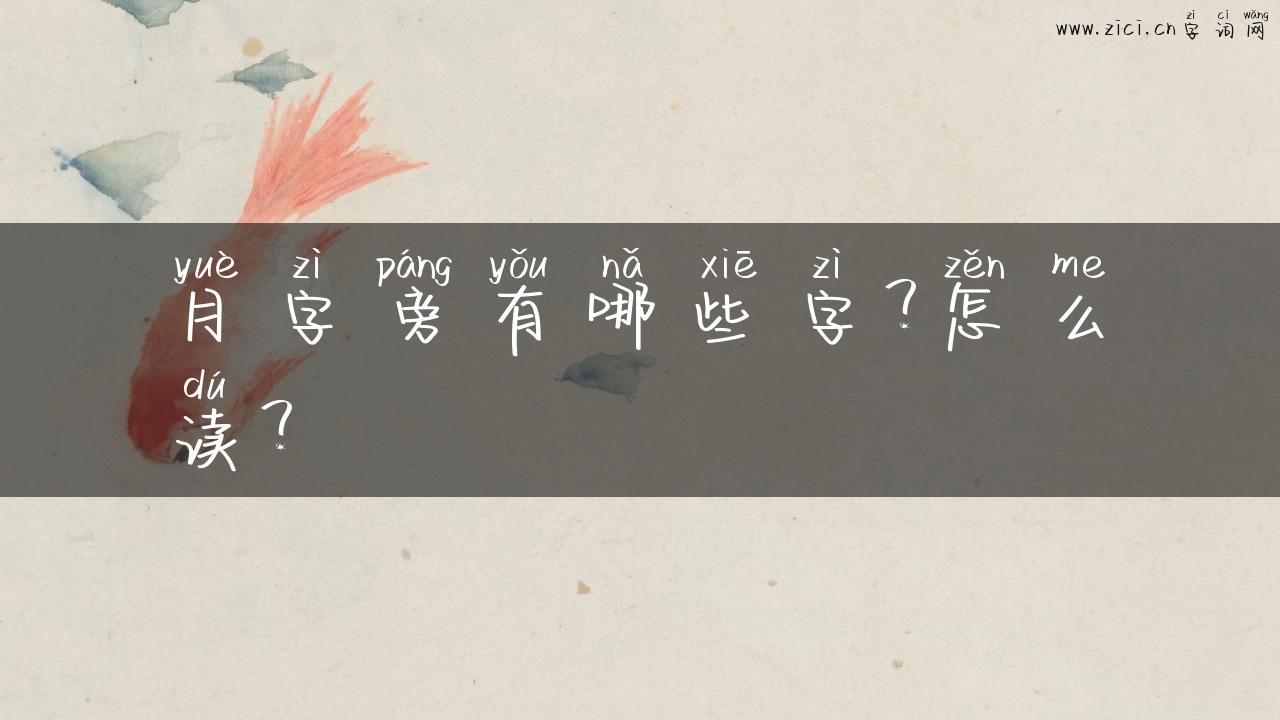 zì cí wǎng
www.zici.cn 字词网
yuè zì páng yǒu nǎ xiē zì zěn me
月字旁有哪些字?怎么
dú
读?